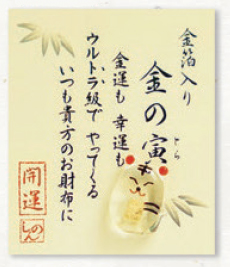 金箔入り
金の寅
とら
金運も 幸運も
ウルトラ級で やってくる
いつも貴方のお財布に
開運